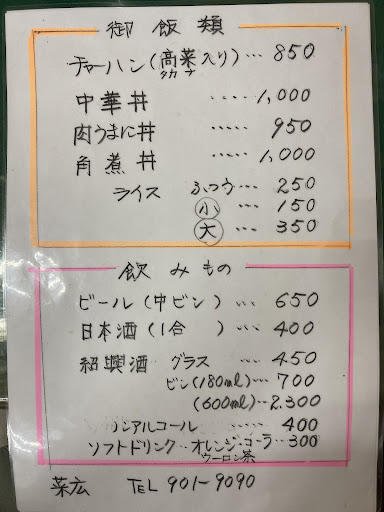 御飯類
チャーハン(高菜入り)… 850
タカナ
中華丼 ····· 1,000
肉うまに丼 ····· 950
角煮丼 ····· 1,000
ライス ふつう… 250
小 … 150
大 … 350
飲みもの
ビール(中ビン) … 650
日本酒(1合 ) … 400
紹興酒 グラス … 450
ビン(180ml)… 700
(600ml)…2,300
ノンアルコール ····· 400
ソフトドリンク‥オレンジ・コーラ…300
ウーロン茶
菜広 TEL 901-9090